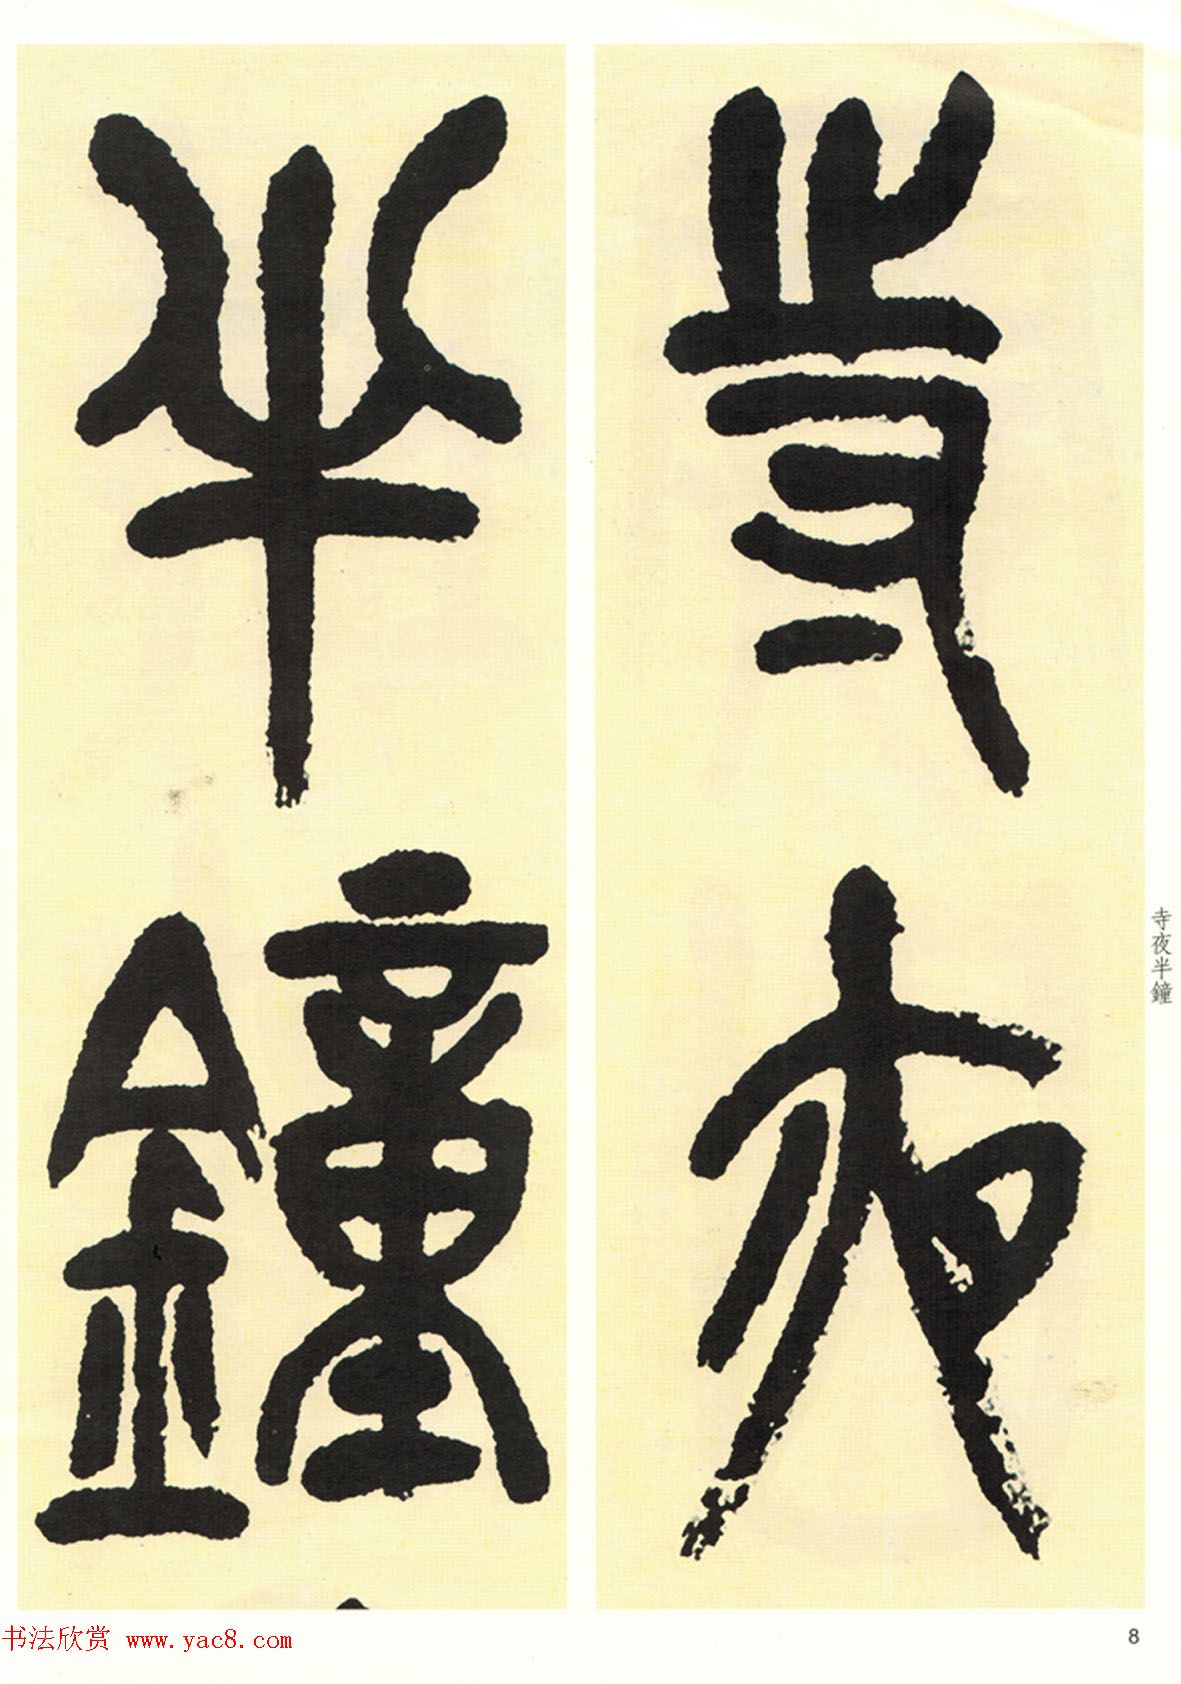 寺夜
半鐘
寺夜半鐘
书法欣赏 www.yac8.com
8